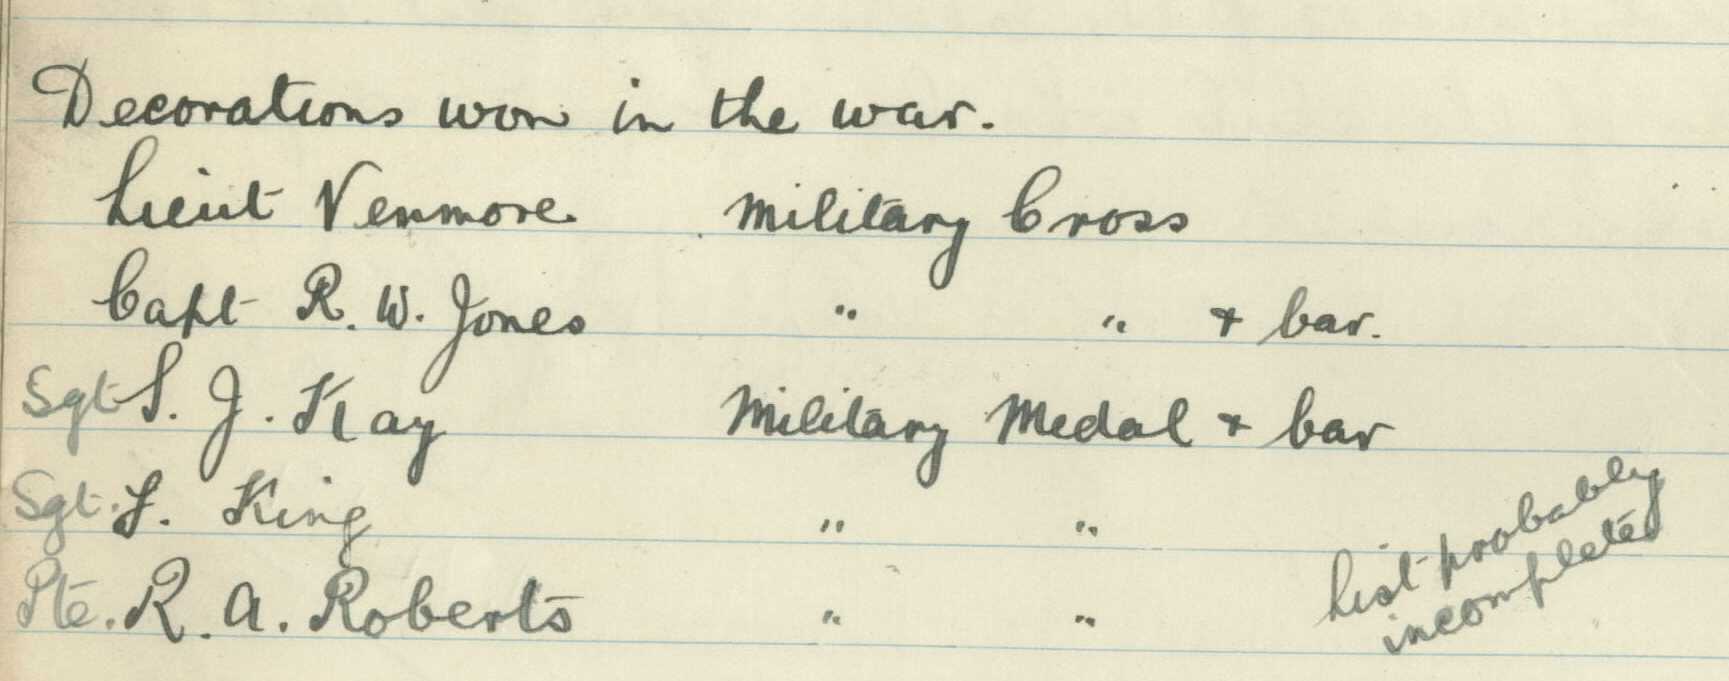 Decorations won in the war.
Lieut Venmore Military Cross
Capt R. W. Jones " " & bar.
Sgt S. J. Kay Military Medal & bar
Sgt. F. King " "
Pte. R. A. Roberts " "
List probably
incomplete